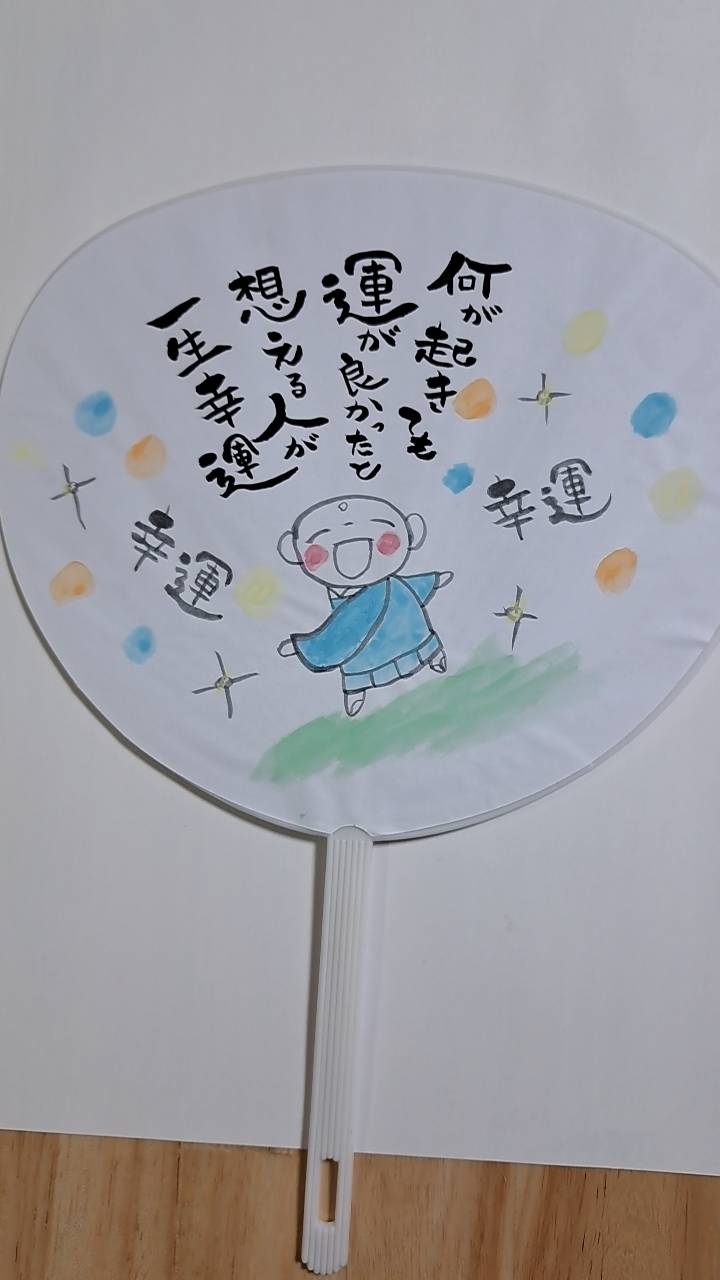 何が起きても
運が良かったと
想える人が
一生幸運
幸運
幸運